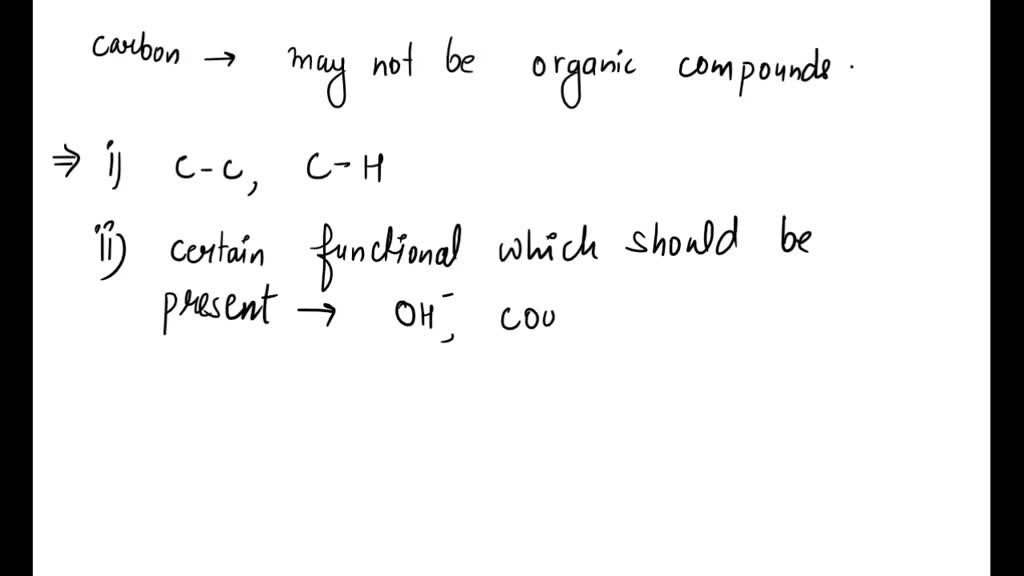 carbon → may not be organic compounds.
⇒ i) C-C, C-H
ii) certain functional which should be
present → OH⁻, COO